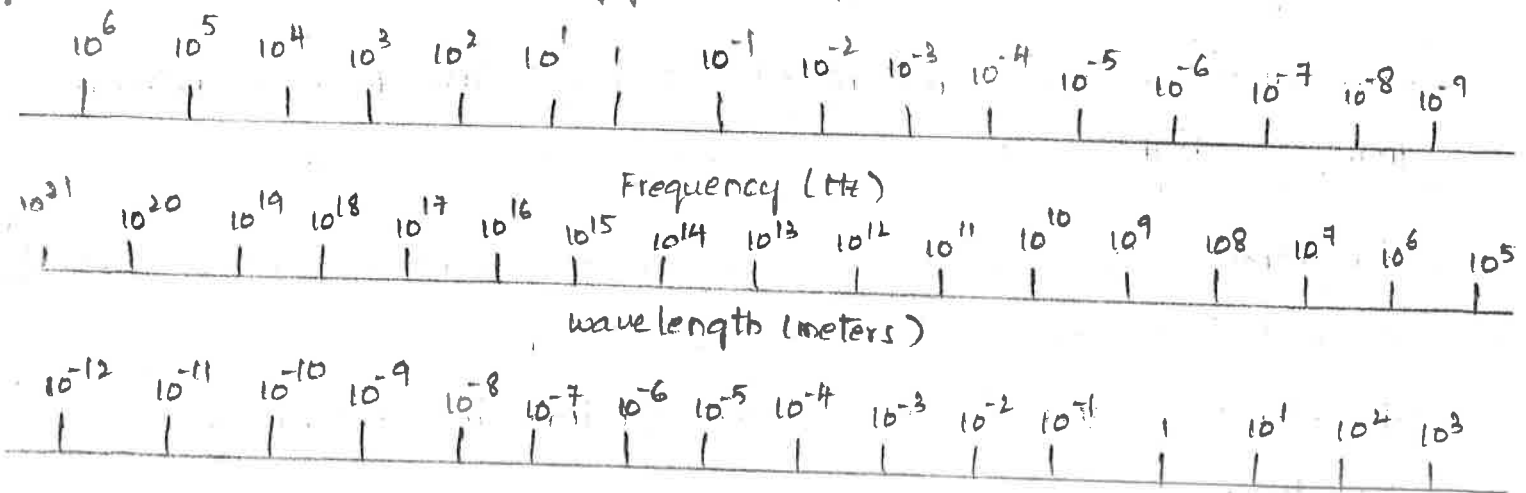 10⁶ 10⁵ 10⁴ 10³ 10² 10¹ 1 10⁻¹ 10⁻² 10⁻³ 10⁻⁴ 10⁻⁵ 10⁻⁶ 10⁻⁷ 10⁻⁸ 10⁻⁹
Frequency (Hz)
10²¹ 10²⁰ 10¹⁹ 10¹⁸ 10¹⁷ 10¹⁶ 10¹⁵ 10¹⁴ 10¹³ 10¹² 10¹¹ 10¹⁰ 10⁹ 10⁸ 10⁷ 10⁶ 10⁵
wavelength (meters)
10⁻¹² 10⁻¹¹ 10⁻¹⁰ 10⁻⁹ 10⁻⁸ 10⁻⁷ 10⁻⁶ 10⁻⁵ 10⁻⁴ 10⁻³ 10⁻² 10⁻¹ 1 10¹ 10² 10³